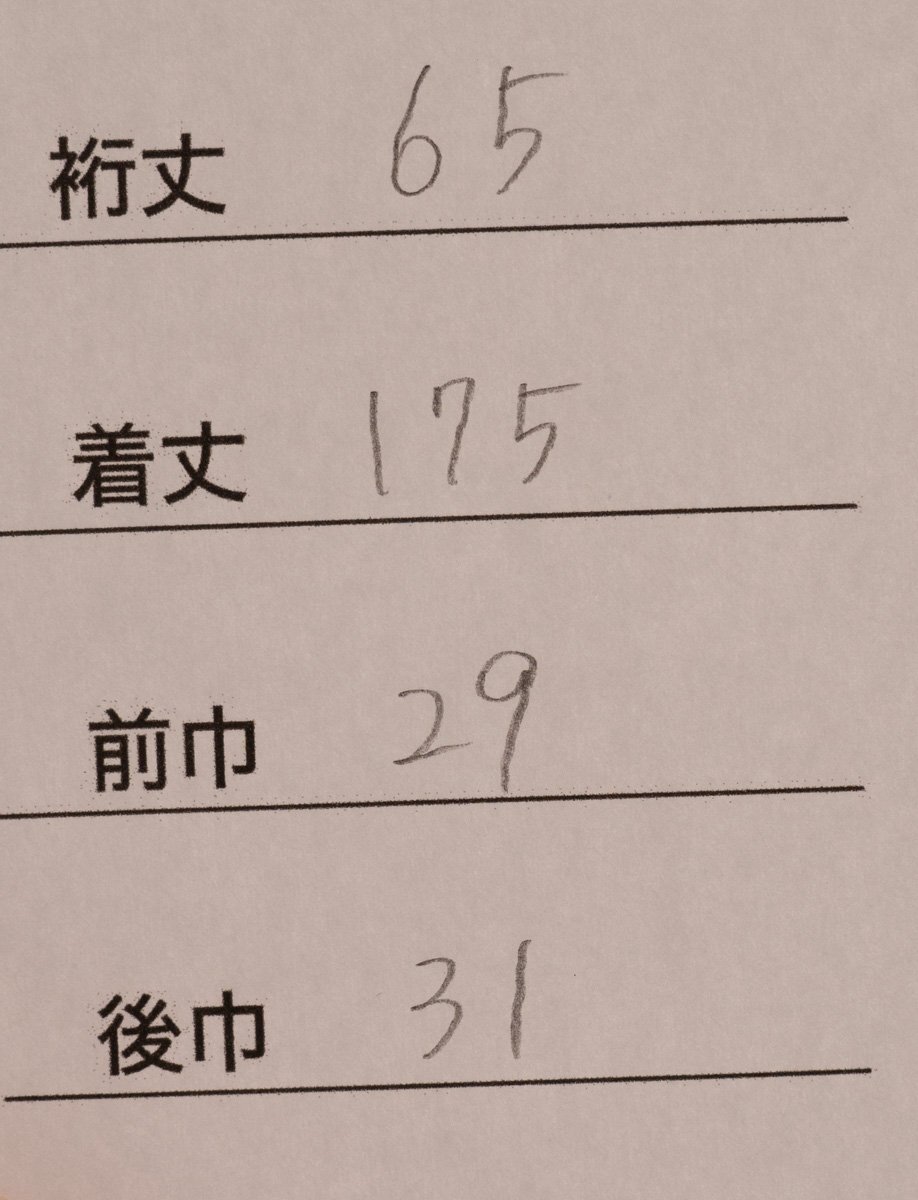 裄丈 65
着丈 175
前巾 29
後巾 31